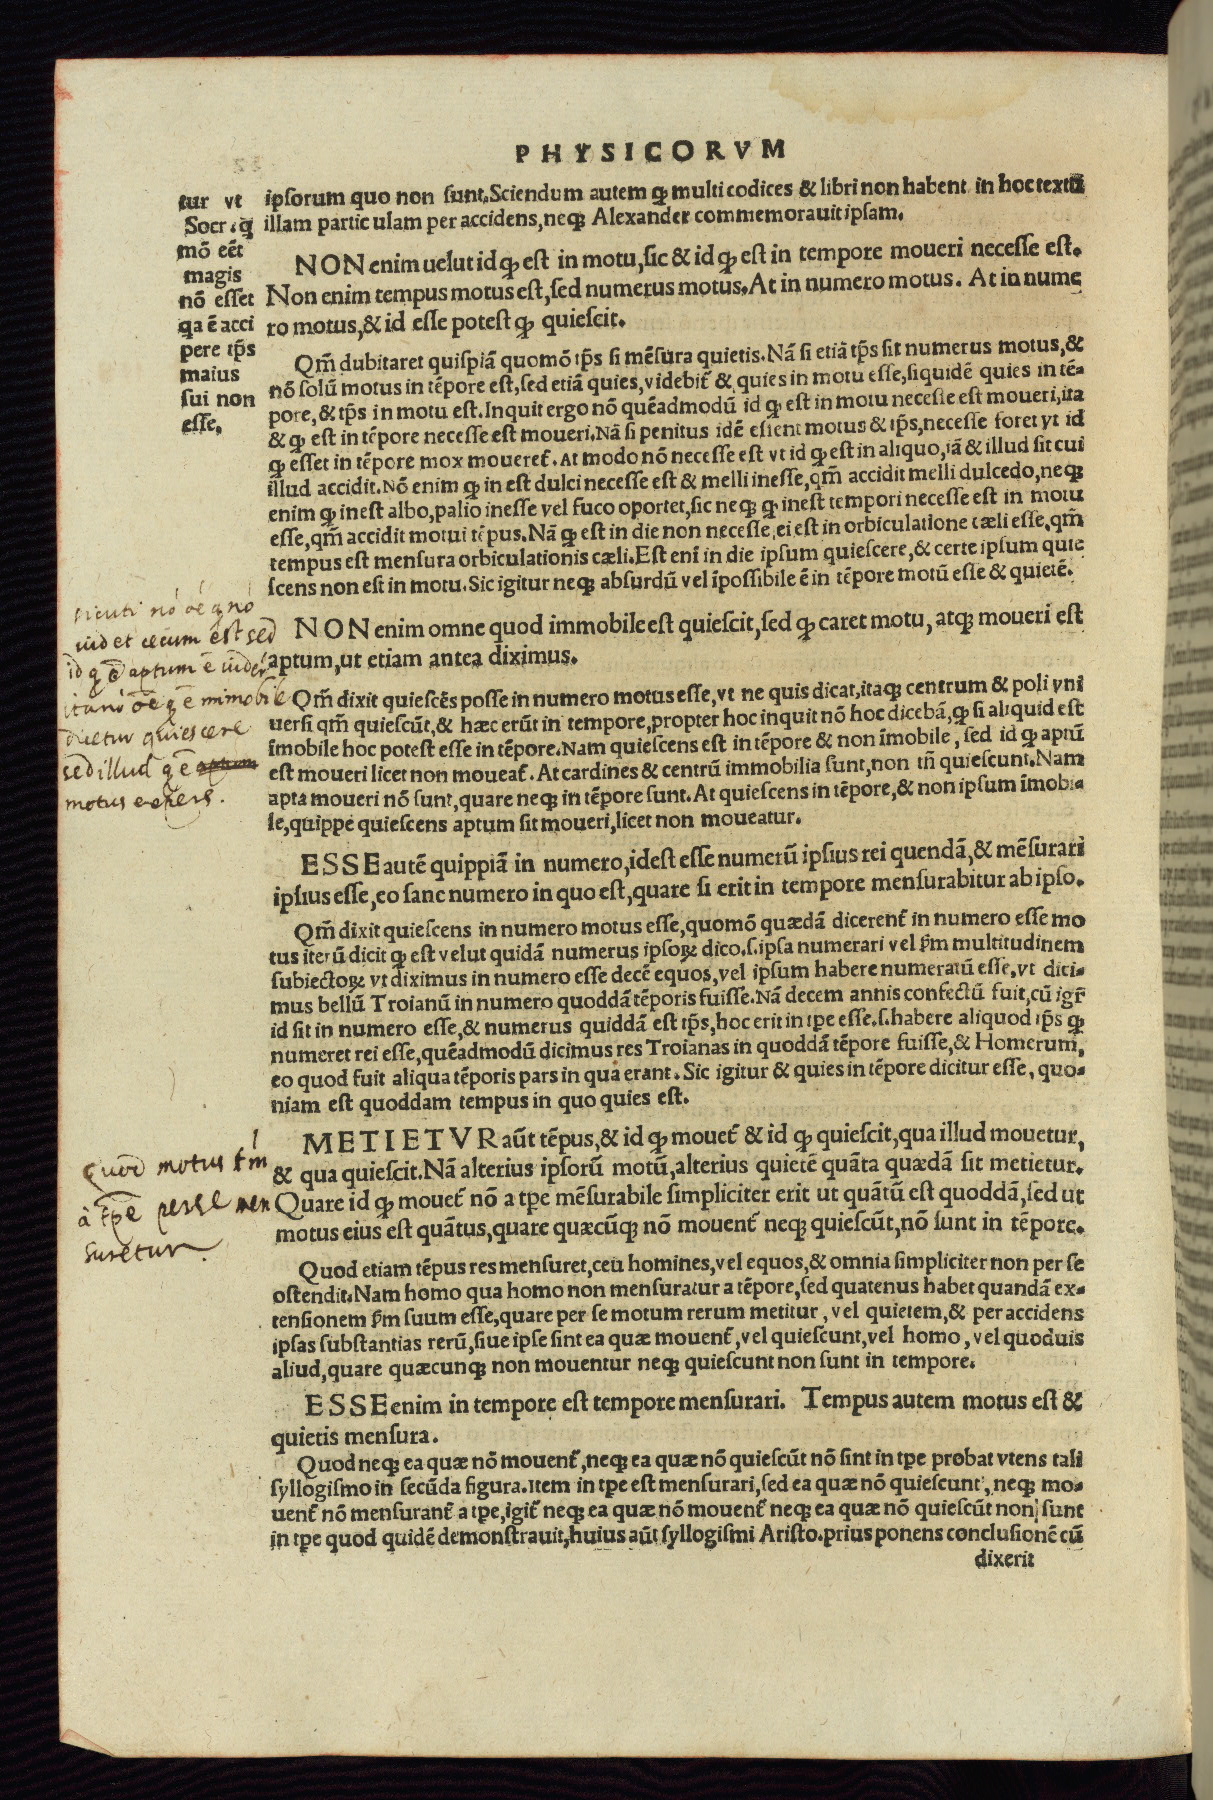 PHYSICORVM
tur vt
Socr. ꝗ
mõ eẽt
magis
nõ esset
ꝗa ẽ acci
pere tp̃s
maius
sui non
esse.
ipsorum quo non sunt. Sciendum autem ꝙ multi codices & libri non habent in hoc textũ
illam partic ulam per accidens, neqꝫ Alexander commemorauit ipsam.
NON enim uelut id ꝙ est in motu, sic & id ꝙ est in tempore moueri necesse est.
Non enim tempus motus est, sed numerus motus. At in numero motus. At in nume
ro motus, & id esse potest ꝙ quiescit.
Qm̃ dubitaret quispiã quomõ tp̃s si mẽsura quietis. Nã si etiã tp̃s sit numerus motus, &
nõ solũ motus in tẽpore est, sed etiã quies, videbit̃ & quies in motu esse, siquidẽ quies in tẽ-
pore, & tp̃s in motu est. Inquit ergo nõ quẽadmodũ id ꝙ est in motu necesse est moueri, ita
& ꝙ est in tẽpore necesse est moueri. Nã si penitus idẽ essent motus & tp̃s, necesse foret vt id
ꝙ esset in tẽpore mox moueret̃. At modo nõ necesse est vt id ꝙ est in aliquo, iã & illud sit cui
illud accidit. Nõ enim ꝙ in est dulci necesse est & melli inesse, qm̃ accidit melli dulcedo, neqꝫ
enim ꝙ inest albo, palio inesse vel fuco oportet, sic neqꝫ ꝙ inest tempori necesse est in motu
esse, qm̃ accidit motui tẽpus. Nã ꝙ est in die non necesse ei est in orbiculatione cæli esse, qm̃
tempus est mensura orbiculationis cæli. Est enĩ in die ipsum quiescere, & certe ipsum quie
scens non est in motu. Sic igitur neqꝫ absurdũ vel ĩpossibile ẽ in tẽpore motũ esse & quietẽ.
sicuti nõ õe q nõ
uidet cecum est sed
id q̃ aptum ẽ uidere
ita nõ õe q ẽ immobile
dicetur quiescere
sed illud q ẽ
motus expers.
NON enim omne quod immobile est quiescit, sed ꝙ caret motu, atqꝫ moueri est
aptum, ut etiam antea diximus.
Qm̃ dixit quiescẽs posse in numero motus esse, vt ne quis dicat, itaqꝫ centrum & poli vni
uersi qm̃ quiescũt, & hæc erũt in tempore, propter hoc inquit nõ hoc dicebã, ꝙ si aliquid est
ĩmobile hoc potest esse in tẽpore. Nam quiescens est in tẽpore & non ĩmobile, sed id ꝙ aptũ
est moueri licet non moueat̃. At cardines & centrũ immobilia sunt, non tñ quiescunt. Nam
apta moueri nõ sunt, quare neqꝫ in tẽpore sunt. At quiescens in tẽpore, & non ipsum ĩmobi-
le, quippe quiescens aptum sit moueri, licet non moueatur.
ESSE autẽ quippiã in numero, idest esse numerũ ipsius rei quendã, & mẽsurari
ipsius esse, eo sane numero in quo est, quare si erit in tempore mensurabitur ab ipso.
Qm̃ dixit quiescens in numero motus esse, quomõ quædã dicerent̃ in numero esse mo
tus iterũ dicit ꝙ est velut quidã numerus ipsoꝝ dico. s. ipsa numerari vel ꝑm multitudinem
subiectoꝝ vt diximus in numero esse decẽ equos, vel ipsum habere numeratũ esse, vt dici-
mus bellũ Troianũ in numero quoddã tẽporis fuisse. Nã decem annis confectũ fuit, cũ igr̃
id sit in numero esse, & numerus quiddã est tp̃s, hoc erit in tpe esse. s. habere aliquod tp̃s ꝙ
numeret rei esse, quẽadmodũ dicimus res Troianas in quoddã tẽpore fuisse, & Homerum,
eo quod fuit aliqua tẽporis pars in qua erant. Sic igitur & quies in tẽpore dicitur esse, quo-
niam est quoddam tempus in quo quies est.
quod motus t̃m
à tp̃e per se men
suretur.
METIETVR aũt tẽpus, & id ꝙ mouet̃ & id ꝙ quiescit, qua illud mouetur,
& qua quiescit. Nã alterius ipsorũ motũ, alterius quietẽ quãta quædã sit metietur.
Quare id ꝙ mouet̃ nõ a tpe mẽsurabile simpliciter erit ut quãtũ est quoddã, sed ut
motus eius est quãtus, quare quæcũqꝫ nõ mouent̃ neqꝫ quiescũt, nõ sunt in tẽpore.
Quod etiam tẽpus res mensuret, ceu homines, vel equos, & omnia simpliciter non per se
ostendit. Nam homo qua homo non mensuratur a tẽpore, sed quatenus habet quandã ex-
tensionem ꝑm suum esse, quare per se motum rerum metitur, vel quietem, & per accidens
ipsas substantias rerũ, siue ipse sint ea quæ mouent̃, vel quiescunt, vel homo, vel quoduis
aliud, quare quæcunqꝫ non mouentur neqꝫ quiescunt non sunt in tempore.
ESSE enim in tempore est tempore mensurari. Tempus autem motus est &
quietis mensura.
Quod neqꝫ ea quæ nõ mouent̃, neqꝫ ea quæ nõ quiescũt nõ sint in tpe probat vtens tali
syllogismo in secũda figura. Item in tpe est mensurari, sed ea quæ nõ quiescunt, neqꝫ mo-
uent̃ nõ mensurant̃ a tpe, igit̃ neqꝫ ea quæ nõ mouent̃ neqꝫ ea quæ nõ quiescũt non sunt
in tpe quod quidẽ demonstrauit, huius aũt syllogismi Aristo. prius ponens conclusionẽ cũ
dixerit